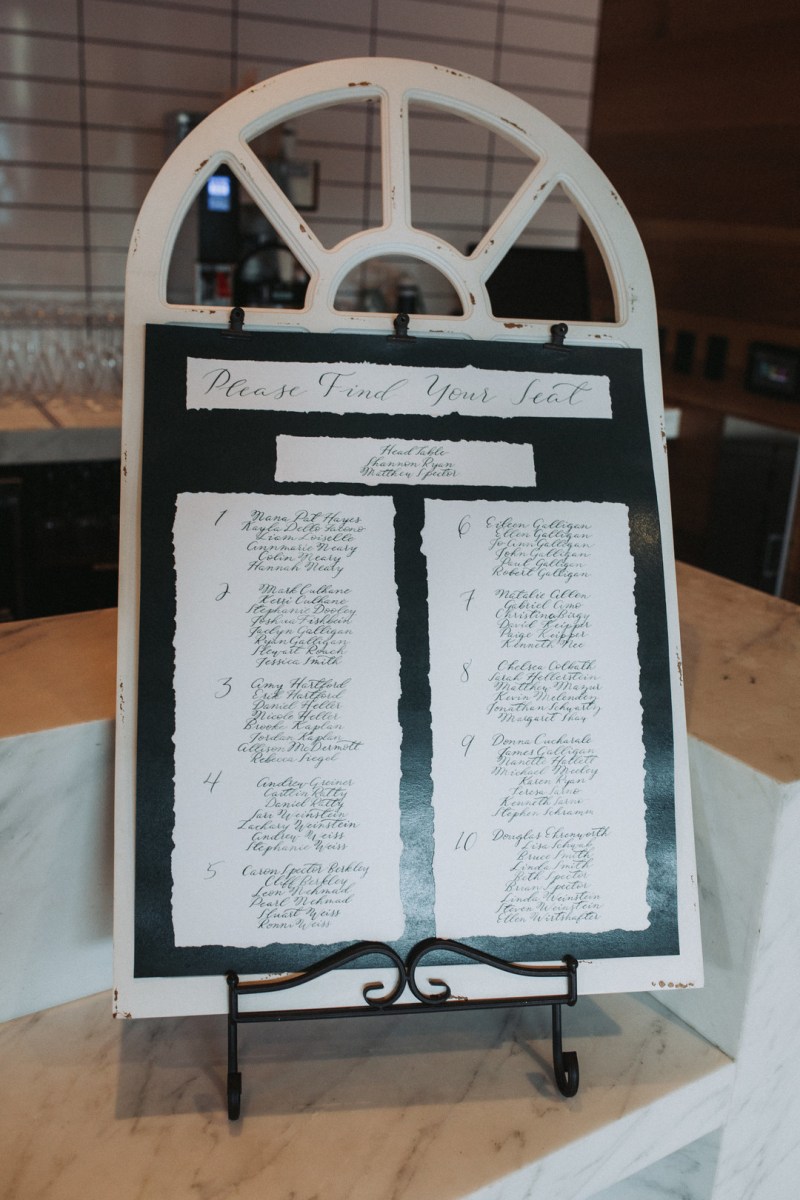 Please Find Your Seat
Head Table
Shannon Ryan
Matthew Spector
1 Nana Pat Hayes
Kayla Dello Iacono
Liam Loiselle
Annmarie Neary
Colin Neary
Hannah Neary
2 Mark Culhane
Kerri Culhane
Stephanie Dooley
Joshua Fishbein
Jaclyn Galligan
Ryan Galligan
Stewart Roach
Jessica Smith
3 Amy Hartford
Eric Hartford
Daniel Heller
Nicole Heller
Brooke Kaplan
Jordan Kaplan
Allison McDermott
Rebecca Siegel
4 Andrey Greiner
Caitlin Ratty
Daniel Ratty
Weinstein
Zachary Weinstein
Andrey Weiss
Stephanie Weiss
5 Caron Spector Berkley
Cliff Berkley
Leon Nehmad
Pearl Nehmad
Stuart Weiss
Ronni Weiss
6 Eileen Galligan
Ellen Galligan
Jo Ann Galligan
John Galligan
Paul Galligan
Robert Galligan
7 Natalie Allon
Gabriel Cimo
Christina Birgy
David Keipper
Paige Keipper
Kenneth Nee
8 Chelsea Colbath
Sarah Hellerstein
Matthew Mazur
Kevin Melendey
Jonathan Schwartz
Margaret Shay
9 Donna Cucharale
James Galligan
Nanette Hallett
Michael Medey
Karen Ryan
Teresa Sarno
Kenneth Sarno
Stephen Schramm
10 Douglas Ehrenworth
Lisa Schwab
Bruce Smith
Linda Smith
Beth Spector
Brian Spector
Linda Weinstein
Steven Weinstein
Ellen Wirtshafter